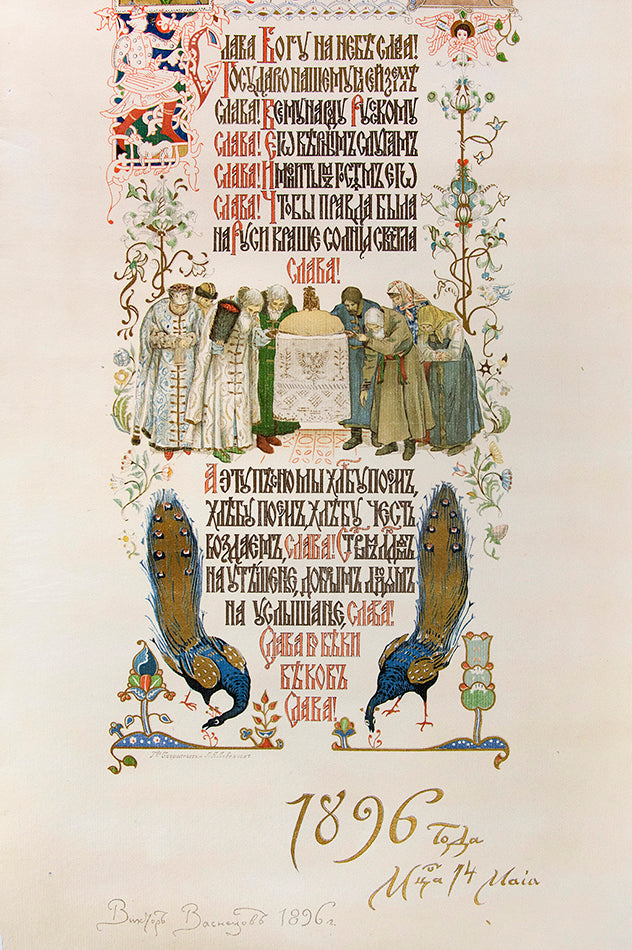 Слава Богу на небѣ слава!
Государю нашему на сей землѣ
слава! Всему народу Русскому
слава! Его вѣрнымъ слугамъ
слава! Именитымъ гостямъ его
слава! Чтобы правда была
на Руси краше солнца свѣтла
слава!
А эту пѣсню мы хлѣбу поемъ,
хлѣбу поемъ, хлѣбу честь
воздаемъ, слава! Старымъ людямъ
на утѣшенье, добрымъ людямъ
на услышанье, слава!
Слава во вѣки
вѣковъ
Слава!
1896
года
Мца 14 Маія
Викторъ Васнецовъ 1896 г.